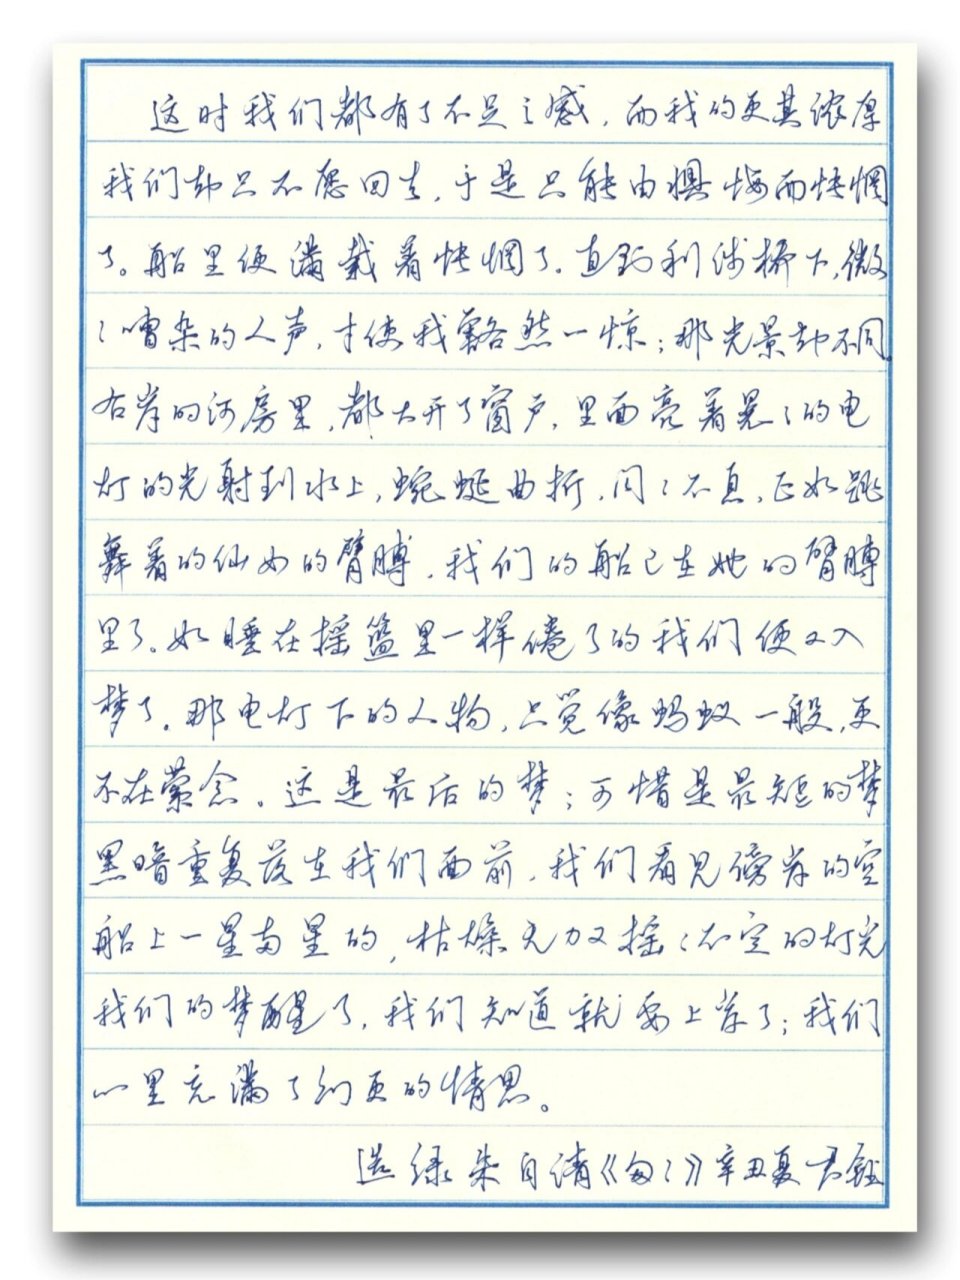 这时我们都有了不足之感，而我的更其浓厚
我们却只不愿回去，于是只能由懊悔而怅惘
了。船里便满载着怅惘了。直到利涉桥下，微
微嘈杂的人声，才使我豁然一惊；那光景却不同。
右岸的河房里，都大开了窗户，里面亮着晃晃的电
灯的光射到水上，蜿蜒曲折，闪闪不息，正如跳
舞着的仙女的臂膊，我们的船已在她的臂膊
里了。如睡在摇篮里一样倦了的我们便又入
梦了。那电灯下的人物，只觉像蚂蚁一般，更
不在萦念。这是最后的梦；可惜是最短的梦
黑暗重复落在我们面前，我们看见傍岸的空
船上一星两星的，枯燥无力又摇摇不定的灯光
我们的梦醒了，我们知道就要上岸了；我们
心里充满了幻灭的情思。
选录朱自清《匆匆》辛丑夏 君钰